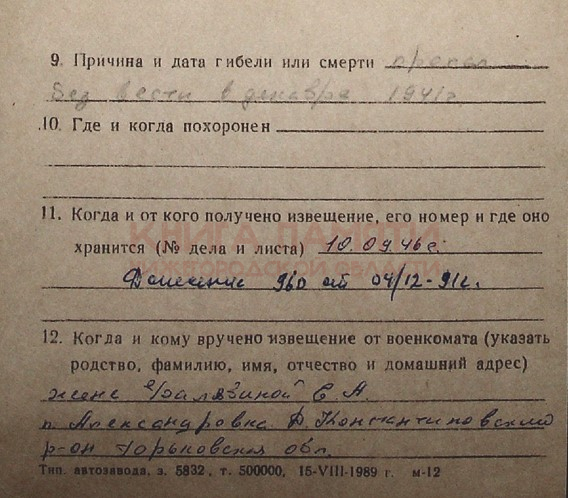 9. Причина и дата гибели или смерти пропал
без вести в декабре 1941г.
10. Где и когда похоронен
11. Когда и от кого получено извещение, его номер и где оно
КНИГА ПАМЯТИ
хранится (№ дела и листа) 10.09.46г.
НИЖЕГОРОДСКОЙ ОБЛАСТИ
Донесение 960 от 04/12-91г.
12. Когда и кому вручено извещение от военкомата (указать
родство, фамилию, имя, отчество и домашний адрес)
жене С. А.
п. Александровка Д. Константиновский
р-он Горьковская обл.
Тип. автозавода, з. 5832, т. 500000, 15-VIII-1989 г. м-12